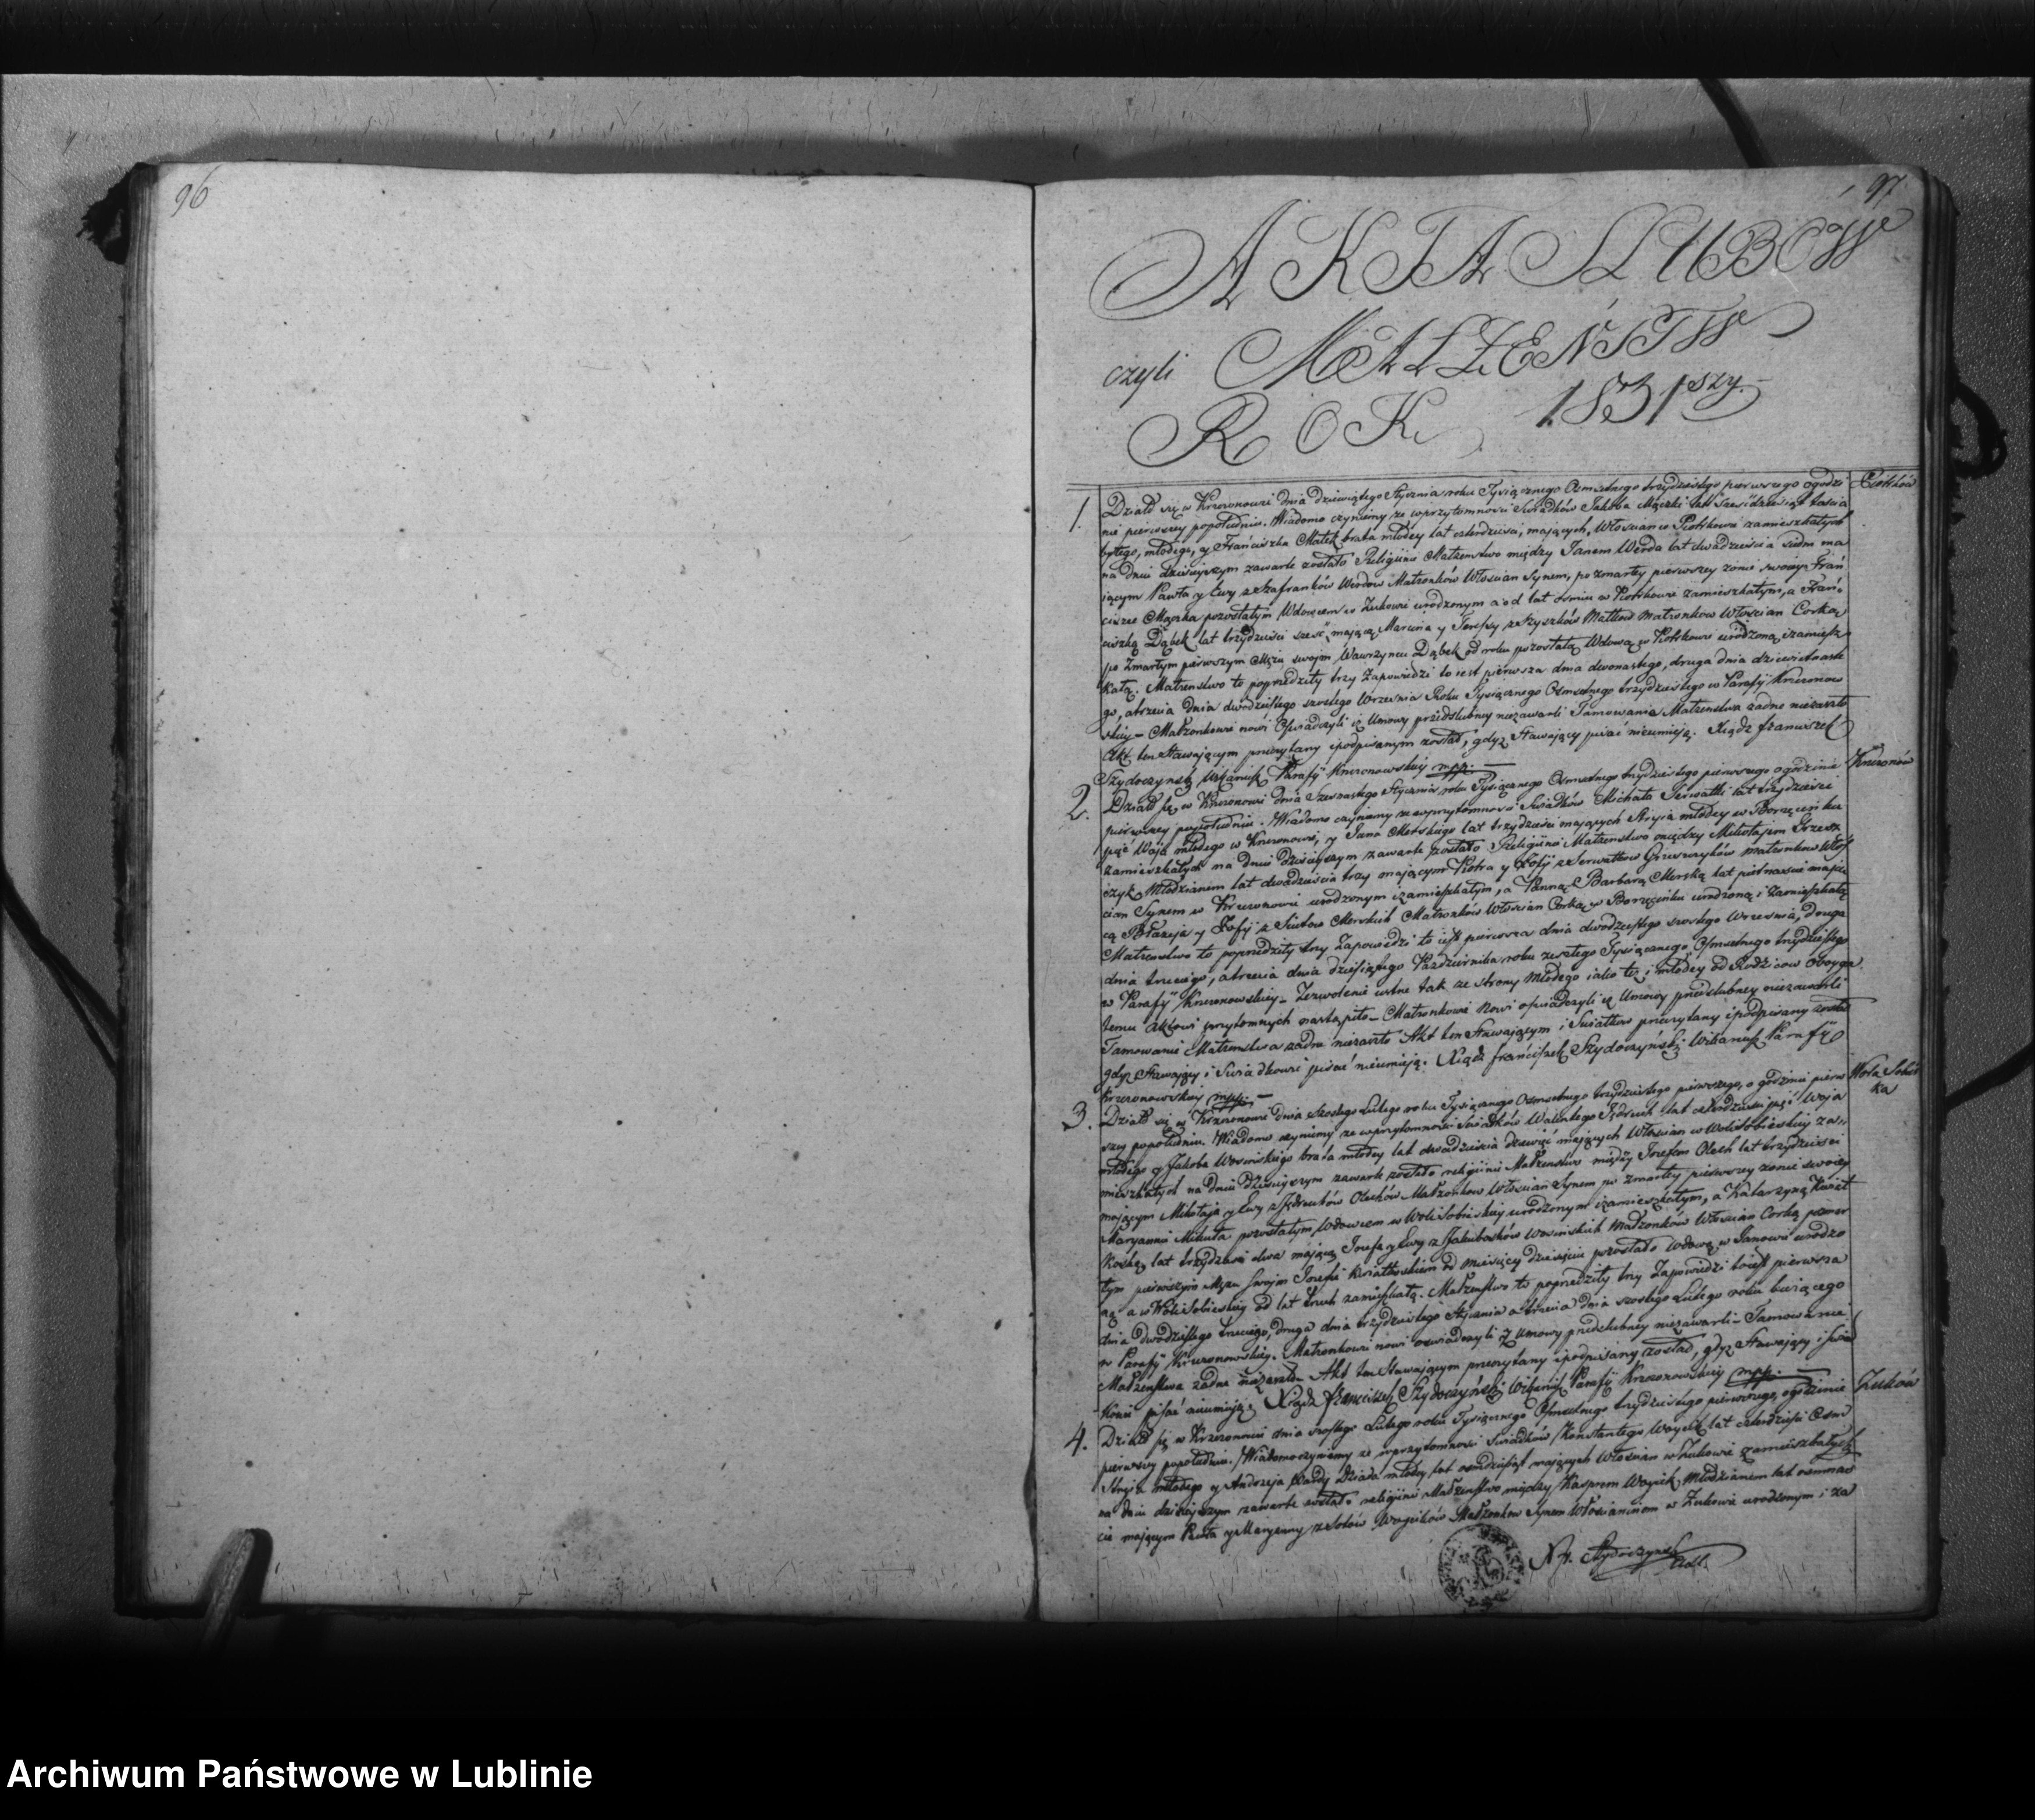 96
97
AKTA SLUBÓW
czyli MAŁŻEŃSTW
ROK 1831szy.
Piotrków
1. Działo się w Krzczonowie dnia dziewiątego Stycznia roku Tysiącznego Osmsetnego trzydziestego pierwszego ogodzi
nie pierwszey popołudniu. Wiadomo czyniemy ze wprzytomności Swiadków Jakóba Mączki lat Sześćdziesiąt
byłego, młodego, y Franciszka Małek brata młodey lat czterdzieści, maiących, Włościan w Piotrkowie zamieszkałych
na dniu dzisieyszym zawarte zostało Religijne Małzenstwo między Janem Werda lat dwadzieścia siedm ma
iącym Pawła y Ewy z Szafranków Werdow Małzonków Włościan Synem, po zmarłey pierwszey zonie swoiey Fran
ciszce Mączka pozostałym Wdowcem w Zukowie urodzonym a od lat ośmiu w Piotrkowie zamieszkałym, a Fran
ciszką Dąbek lat trzydzieści sześć maiącą Marcina y Teressy z Ryszków Małkow Małzonkow Włościan Corką
po Zmarłym pierwszym Mężu swoim Wawrzyncu Dąbek od roku pozostałą Wdową w Piotrkowie urodzoną izamiesz
kałą. Małzenstwo to poprzedziły trzy Zapowiedzi to iest pierwsza dnia dwonastego, druga dnia dziewietnaste
go, atrzecia dnia dwudziestego szostego Wrzesnia Roku Tysiącznego Osmsetnego trzydziestego w Parafij Krzczonow
skiey – Małzonkowie nowi Oswiadczyli iż Umowy przedślubney niezawarli Tamowanie Małzenstwa zadne niezaszło
Akt ten Stawaiącym przeczytany ipodpisanym został, gdyz Stawaiący pisać nieumieią. Xiądz Franciszek
Szydoczynski Wikariusz Parafij Krzczonowskiey mpp. –
Krzczonów
2. Działo się w Krzczonowie dnia Szesnastego Stycznia roku Tysiącznego Osmsetnego trzydziestego pierwszego ogodzinie
pierwszey popołudniu. Wiadomo czyniemy ze wprzytomności Swiadków Michała Serwatki lat trzydzieści
pięć Wuja młodego w Krzczonowie, y Jana Merskiego lat trzydzieści maiących Stryia młodey w Borzęcinku
zamieszkałych na dniu dzisieyszym zawarte zostało Religijne Małzenstwo między Mikołajem Grzesz
czyk Młodzianem lat dwadzieścia trzy maiącym Piotra y Zofij z Serwatkow Grzeszczyków małzonkow Włoś
cian Synem w Krzczonowie urodzonym izamieszkałym, a Panną Barbarą Merską lat pietnascie maią
cą Błazeja y Zofij z Merskich Małzonków Włoscian Corką w Borzęcinku urodzoną i Zamieszkałą
Małzenstwo to poprzedziły trzy Zapowiedzi to iest pierwsza dnia dwudziestego szostego Wrzesnia, druga
dnia trzeciego, atrzecia dnia dziesiątego Pazdziernika roku zeszłego Tysiącznego Osmsetnego trzydziestego
w Parafij Krzczonowskiey – Zezwolenie ustne tak ze strony Młodego iako też i młodey od Rodzicow oboyga
temu aktowi przytomnych nastąpiło – Małzonkowie Nowi oswiadczyli iż Umowy przedslubney niezawarli
Tamowanie Małzenstwa zadne niezaszło Akt ten Stawaiącym i Swiadkow przeczytany ipodpisany został
gdyz Stawaiący i Swiadkowie pisać nieumieią. Xiądz Franciszek Szydoczynski Wikariusz Parafij
Krzczonowskiey mpp. –
Wola Sobies
ka
3. Działo się w Krzczonowie dnia Szostego Lutego roku Tysiącznego Osmsetnego trzydziestego pierwszego, o godzinie pierw
szey popołudniu. Wiadomo czyniemy ze wprzytomności Swiadków Walentego Jędruch lat czterdzieści pięć Wuja
młodego y Jakoba Wosinskiego brata młodey lat dwadzieścia dziewięć maiących Włościan w Woli Sobieskiey za
mieszkałych na dniu dzisieyszym zawarte zostało religijne Małzenstwo między Jozefem Olech lat trzydzieści
maiącym Mikołaja y Ewy z Jędruchów Olechów Małzonkow Włościan Synem po zmarłey pierwszey zonie swoiey
Maryannie Mikuła pozostałym Wdowcem w Woli Sobieskiey urodzonym izamieszkałym, a Katarzyną Kwiat
koską lat trzydzieści dwa maiącą Jozefa y Ewy z Jakubosków Wosinskich Małzonków Włościan Corką po zmar
łym pierwszym Mężu Swoim Jozefie Kwiatkowskim od miesięcy dziesięciu pozostałą Wdową w Janowie urodzo
ną a w Woli Sobieskiey od lat trzech zamieszkałą. Małzenstwo to poprzedziły trzy Zapowiedzi to iest pierwsza
dnia dwudziestego trzeciego, druga dnia trzydziestego Stycznia a trzecia dnia szostego Lutego roku bieżącego
w Parafij Krzczonowskiey. Małzonkowie nowi oswiadczyli iż Umowy przedslubney niezawarli – Tamowanie
Małzenstwa zadne niezaszło – Akt ten Stawaiącym przeczytany ipodpisany został, gdyz Stawaiący i Swiad
kowie pisać nieumieią. Xiądz Franciszek Szydoczynski Wikariusz Parafij Krzczonowskiey mpp. –
Zuków
4. Działo się w Krzczonowie dnia szostego Lutego roku Tysiącznego Osmsetnego trzydziestego pierwszego, ogodzinie
pierwszey popołudniu. Wiadomo czyniemy ze wprzytomności Swiadków Konstantego Woycik lat czterdzieści Osm
Stryia młodego y Andrzeja Dziada młodey lat osmdziesiąt maiących Włościan w Zukowie zamieszkałych
na dniu dzisieyszym zawarte zostało religijne Małzenstwo między Kasprem Woycik Młodzianem lat osmnas
cie maiącym Pawła y Maryanny z Sołów Woycików Małzonkow Synem Włościaninem w Zukowie urodzonym i za
Archiwum Państwowe w Lublinie